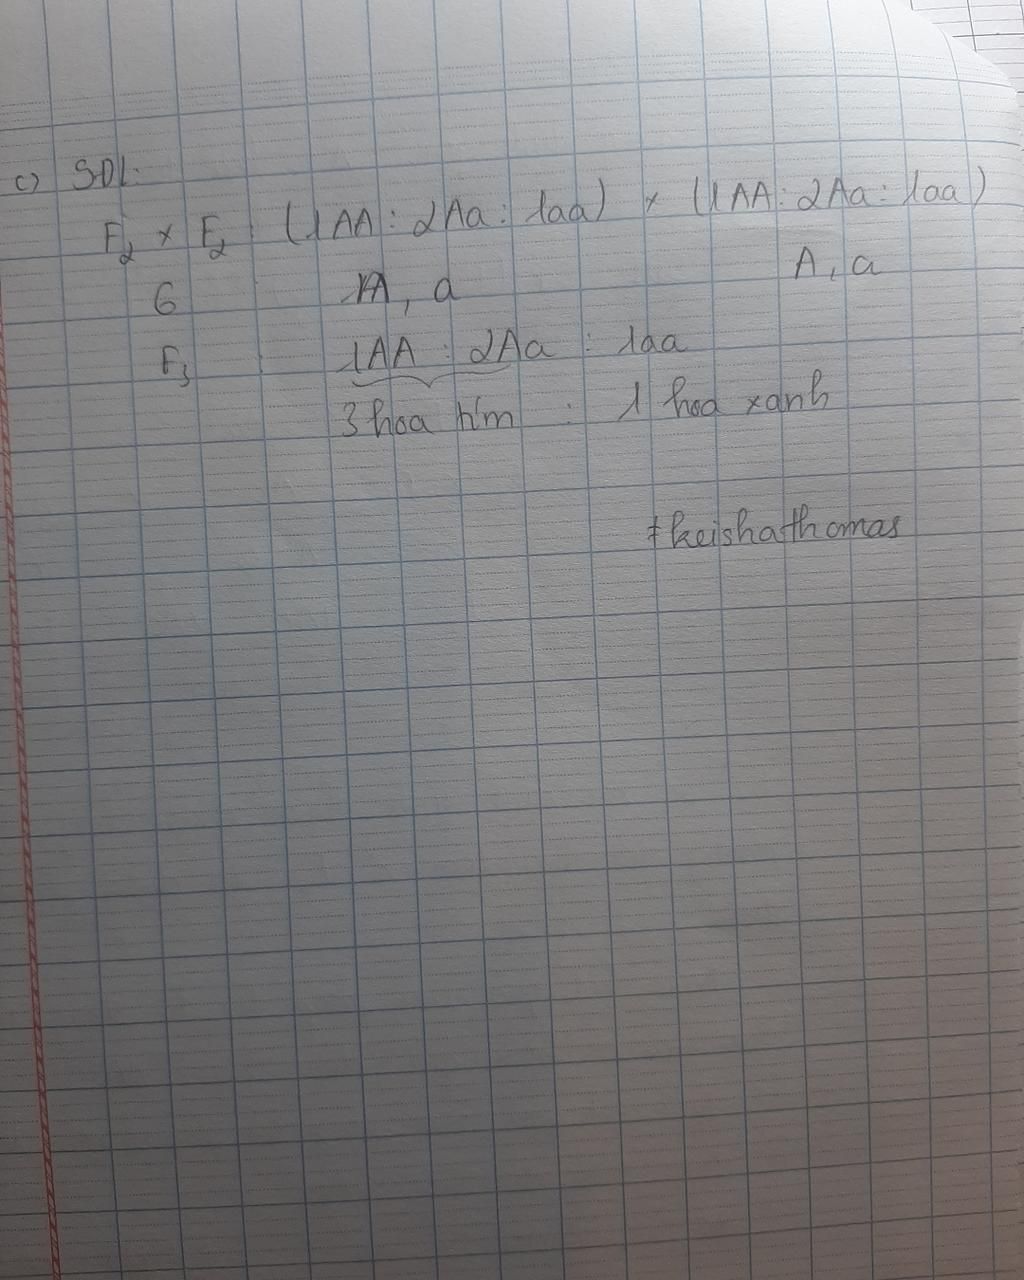 c) SĐL:
F2 x F2 : (1AA : 2Aa : 1aa) x (1AA : 2Aa : 1aa)
G : A, a A, a
F3 : 1AA : 2Aa : 1aa
3 hoa tím : 1 hoa xanh
#keishathomas